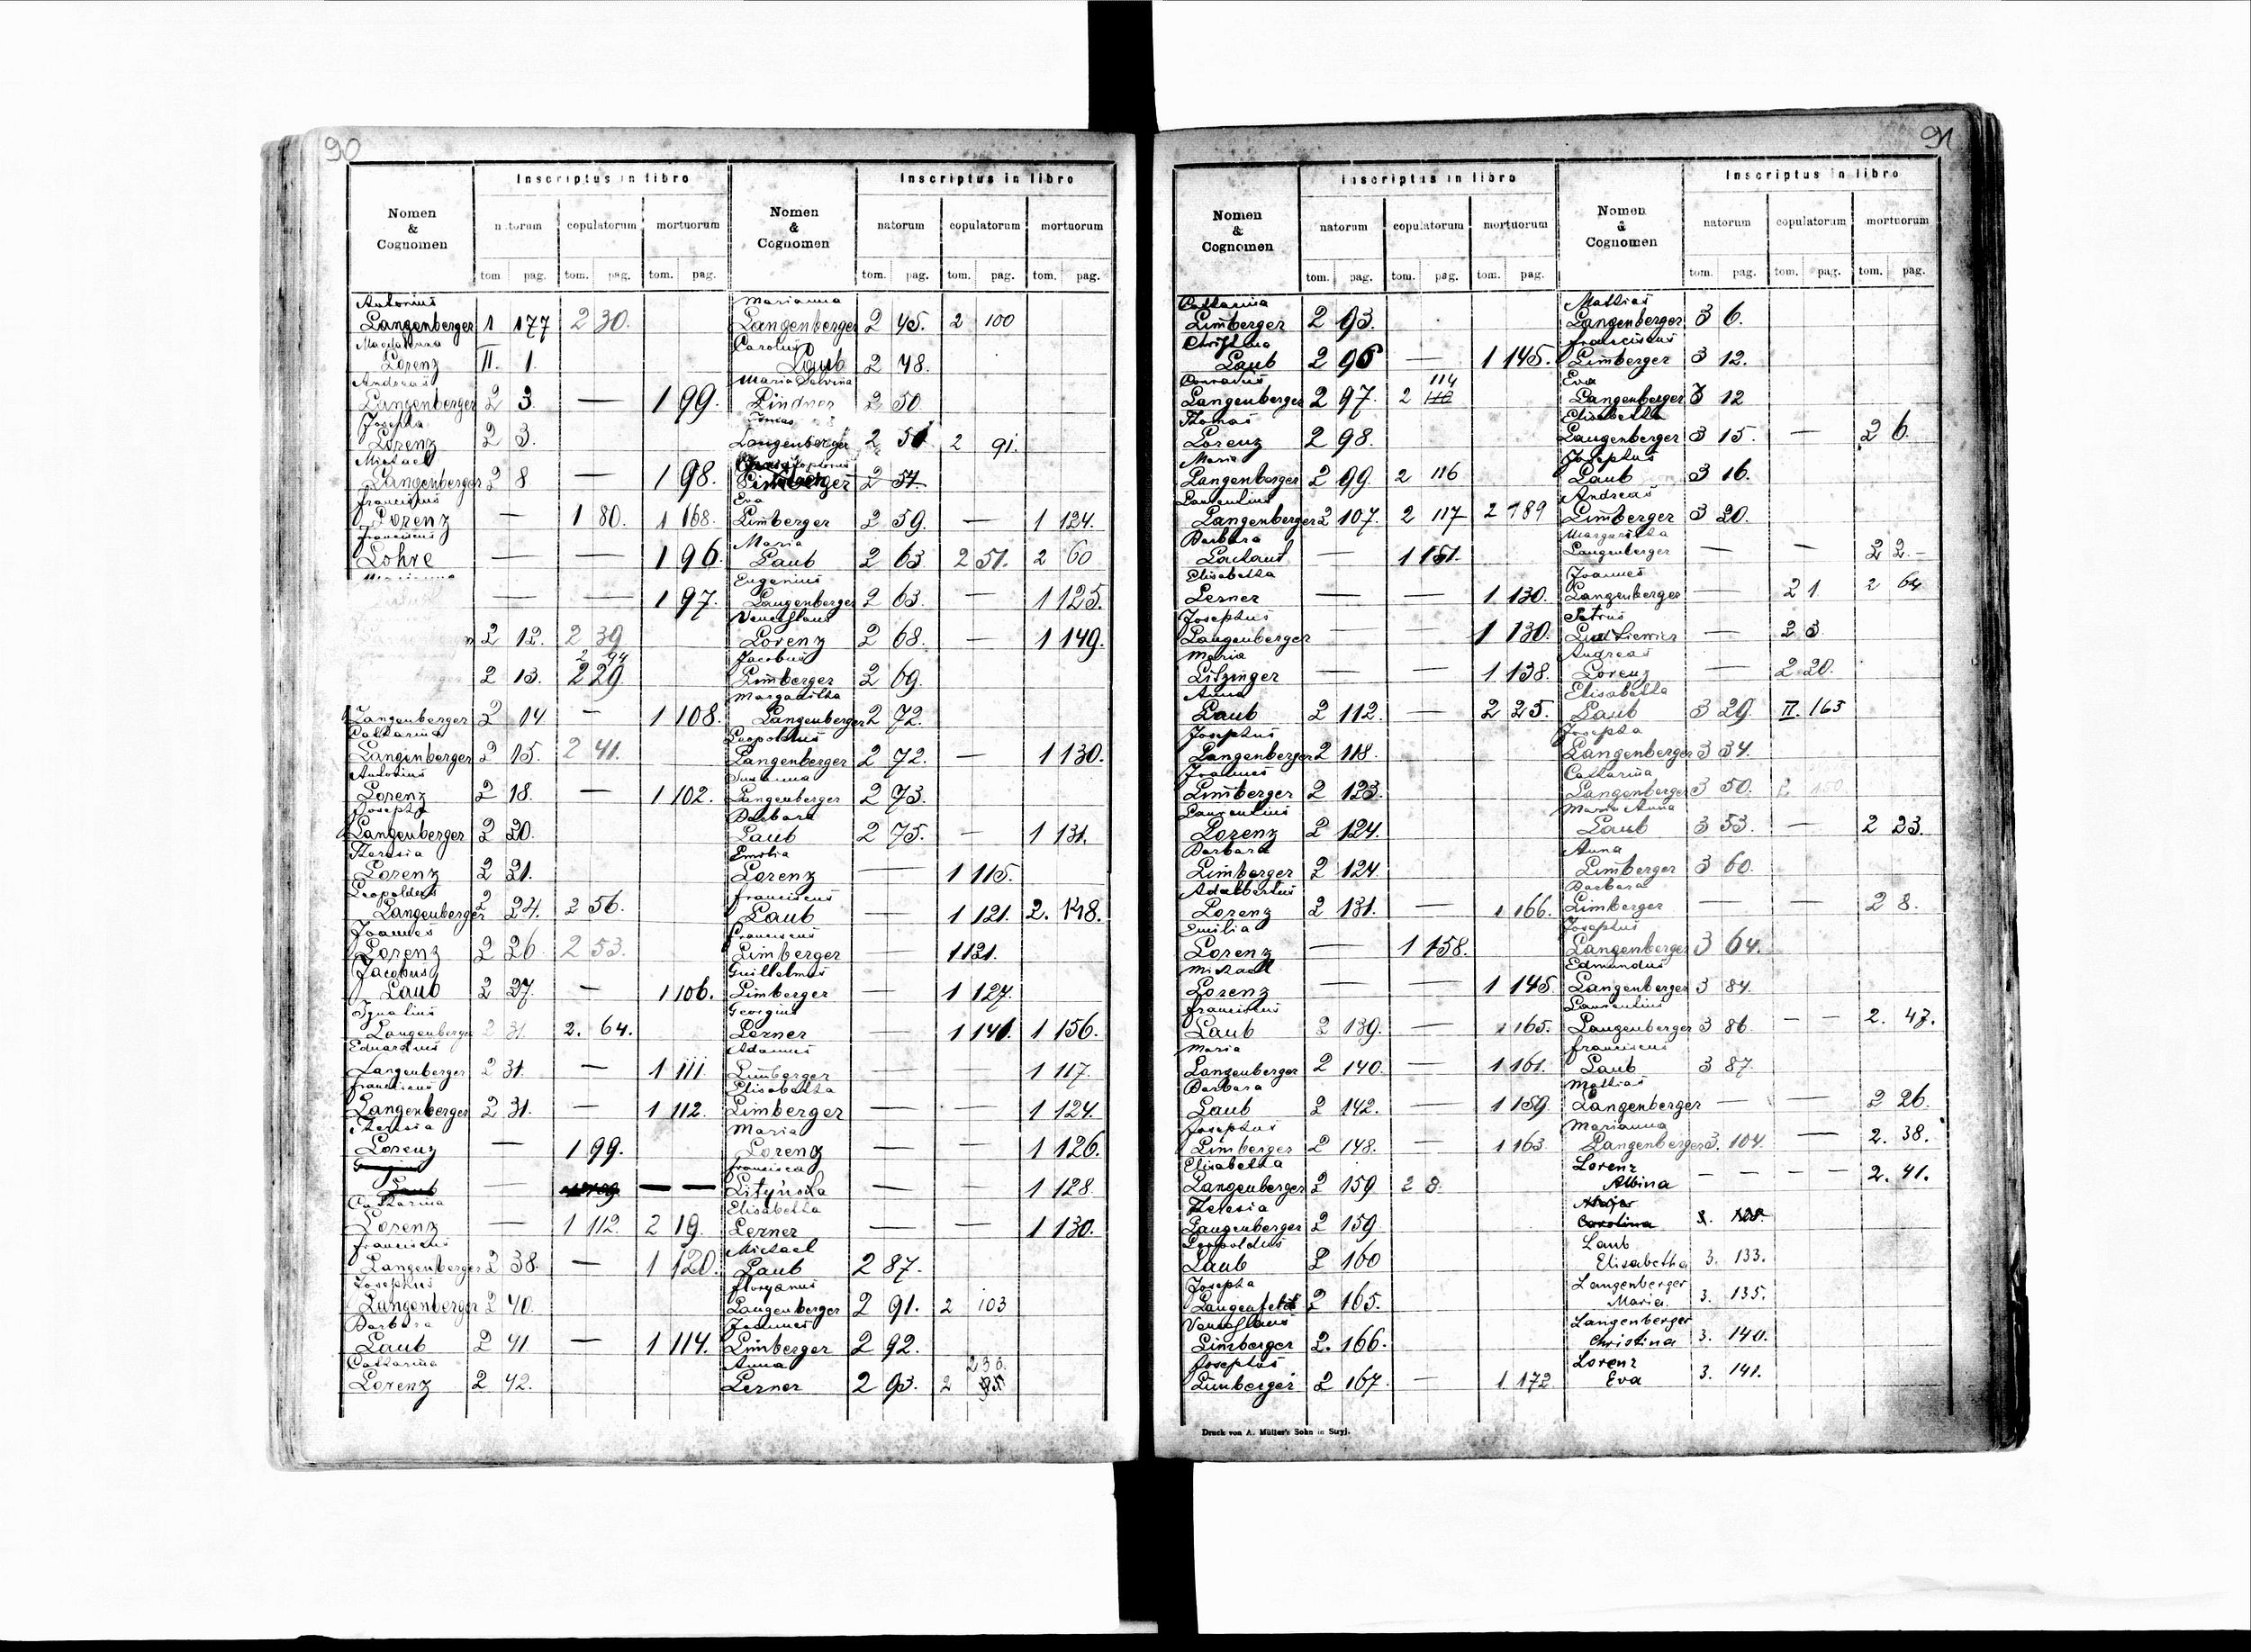 90
Inscriptus in libro
Nomen & Cognomen
natorum copulatorum mortuorum
tom. pag. tom. pag. tom. pag.
Antonius
Langenberger 1 177 2 30.
Magdalena
Lorenz II. 1.
Andreas
Langenberger 2 3. — 1 99.
Josepha
Lorenz 2 3.
Michael
Langenberger 2 8 — 1 98.
Franciscus
Lorenz — 1 80. 1 168.
Franciscus
Lohre — — 1 96.
— — 1 97.
2 12. 2 39
2 94
2 13. 2 29.
Langenberger 2 14 — 1 108.
Catharina
Langenberger 2 15. 2 41.
Antonius
Lorenz 2 18. — 1 102.
Josepha
Langenberger 2 20.
Theresia
Lorenz 2 21.
Leopoldus
Langenberger 2 24. 2 56.
Joannes
Lorenz 2 26 2 53.
Jacobus
Laub 2 27. — 1 106.
Ignatius
Langenberger 2 31. 2. 64.
Eduardus
Langenberger 2 31. — 1 111
Franciscus
Langenberger 2 31. — 1 112.
Theresia
Lorenz — 1 99.
Laub — — —
Catharina
Lorenz — 1 112. 2 19.
Franciscus
Langenberger 2 38. — 1 120.
Josephus
Langenberger 2 40.
Barbara
Laub 2 41 — 1 114.
Catharina
Lorenz 2 42.
Inscriptus in libro
Nomen & Cognomen
natorum copulatorum mortuorum
tom. pag. tom. pag. tom. pag.
Marianna
Langenberger 2 45. 2 100
Carolus
Laub 2 48.
Maria Salvina
Lindner 2 50
Langenberger 2 51 2 91.
2 57.
Eva
Limberger 2 59. — 1 124.
Maria
Laub 2 63 2 51. 2 60
Eugenius
Langenberger 2 63 — 1 125.
Venceslaus
Lorenz 2 68. — 1 149.
Jacobus
Limberger 2 69.
Margaritha
Langenberger 2 72.
Leopoldus
Langenberger 2 72. — 1 130.
Susanna
Langenberger 2 73.
Barbara
Laub 2 75. — 1 131.
Emilia
Lorenz — 1 115.
Franciscus
Laub — 1 121. 2. 148.
Franciscus
Limberger — 1 121.
Guilhelmus
Limberger — 1 127.
Georgius
Lerner — 1 141. 1 156.
Adamus
Limberger — — 1 117.
Elisabetha
Limberger — — 1 124.
Maria
Lorenz — — 1 126.
Francisca
Lityńska — — 1 128.
Elisabetha
Lerner — — 1 130.
Michael
Laub 2 87.
Floryanus
Langenberger 2 91. 2 103
Joannes
Limberger 2 92.
Anna 236.
Lerner 2 93. 2 95
91
Inscriptus in libro
Nomen & Cognomen
natorum copulatorum mortuorum
tom. pag. tom. pag. tom. pag.
Catharina
Limberger 2 93.
Christina
Laub 2 96 — 1 145.
Conradus 114
Langenberger 2 97. 2 112
Thomas
Lorenz 2 98.
Maria
Langenberger 2 99. 2 116
Laurentius
Langenberger 2 107. 2 117 2 189
Barbara
— 1 151.
Elisabetha
Lerner — — 1 130.
Josephus
Langenberger — — 1 130.
Maria
Litzinger — — 1 138.
Anna
Laub 2 112. — 2 25.
Josephus
Langenberger 2 118.
Joannes
Limberger 2 123.
Laurentius
Lorenz 2 124.
Barbara
Limberger 2 124.
Adalbertus
Lorenz 2 131. — 1 166.
Emilia
Lorenz — 1 158.
Michael
Lorenz — — 1 145.
Franciscus
Laub 2 139. — 1 165.
Maria
Langenberger 2 140. — 1 161.
Barbara
Laub 2 142. — 1 159
Josephus
Limberger 2 148. — 1 163.
Elisabetha
Langenberger 2 159 2 8.
Theresia
Langenberger 2 159.
Leopoldus
Laub 2 160
Josepha
Langenfeld 2 165.
Venceslaus
Limberger 2. 166.
Josephus
Limberger 2 167. — 1 172
Inscriptus in libro
Nomen & Cognomen
natorum copulatorum mortuorum
tom. pag. tom. pag. tom. pag.
Mathias
Langenberger 3 6.
Franciscus
Limberger 3 12.
Eva
Langenberger 3 12
Elisabetha
Langenberger 3 15. — 2 6.
Josephus
Laub 3 16.
Andreas
Limberger 3 20.
Margaritha
Langenberger — — 2 2.
Joannes
Langenberger — 2 1. 2 64
Petrus
— 2 3.
Andreas
Lorenz — 2 20.
Elisabetha
Laub 3 29. II. 163
Josepha
Langenberger 3 34.
Catharina
Langenberger 3 50. 2. 150
Maria Anna
Laub 3 53. — 2 23.
Anna
Limberger 3 60.
Barbara
Limberger — — 2 8.
Josephus
Langenberger 3 64.
Edmundus
Langenberger 3 84.
Laurentius
Langenberger 3 86. — — 2. 47.
Franciscus
Laub 3 87.
Mathias
Langenberger — — 2 26.
Marianna
Langenberger 3. 104. — 2. 38.
Lorenz
Albina — — — — 2. 41.
Majer
Carolina 3. 128.
Laub
Elisabetha 3. 133.
Langenberger
Maria. 3. 135.
Langenberger
Christina 3. 140.
Lorenz
Eva 3. 141.
Druck von A. Müller's Sohn in Stryj.